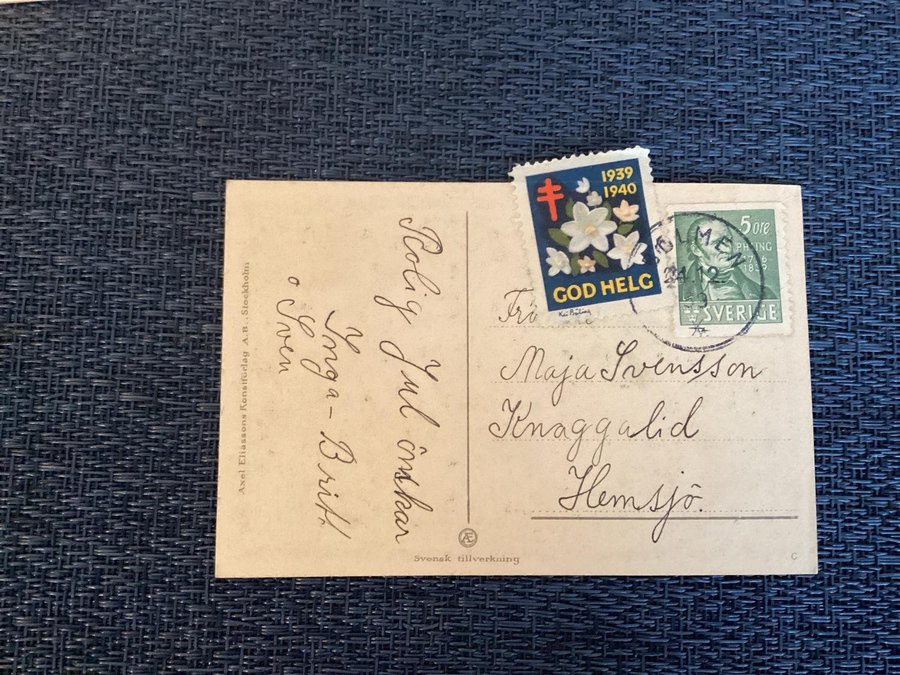 Axel Eliassons Konstförlag A.B., Stockholm
Rolig Jul önskar
Inga-Britt
o Sven
1939
1940
GOD HELG
5 öre
SVERIGE
24 12
Maja Svensson
Knaggalid
Hemsjö.
Æ
Svensk tillverkning
C